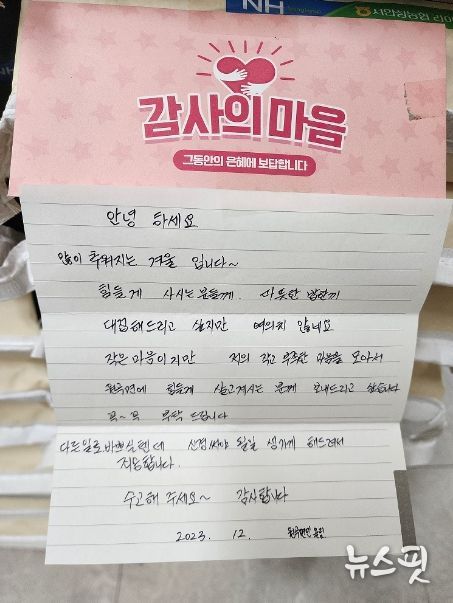 NH
감사의 마음
그동안의 은혜에 보답합니다
안녕 하세요
많이 추워지는 겨울 입니다~
힘들게 사시는 분들께. 따뜻한 밥한끼
대접해드리고 싶지만 여의치 않네요
작은 마음이지만 저의 작고 부족한 마음을 모아서
힘들게 살고계시는 분께 보내드리고 싶습니다
꼭~꼭 부탁 드립니다
다른일로 바쁘실텐데 신경써야 될일 생기게 해드려서
죄송합니다.
수고해 주세요~ 감사합니다
2023. 12.
뉴스핏